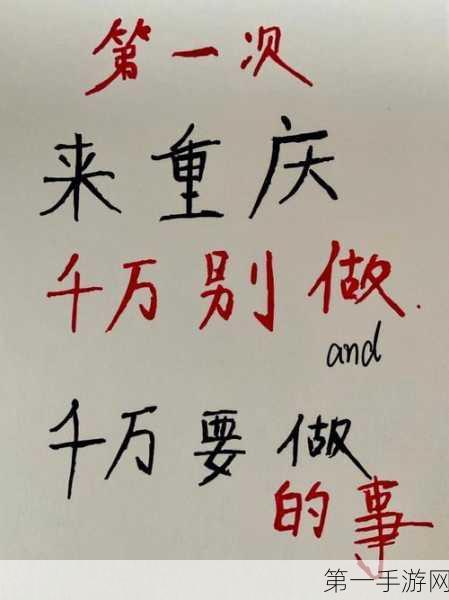 第一次
来重庆
千万别做
and
千万要做
的事
第一手游网